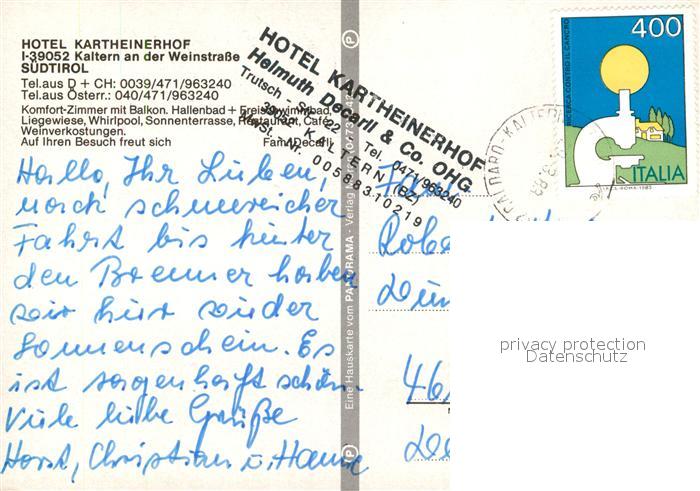 HOTEL KARTHEINERHOF
I-39052 Kaltern an der Weinstraße
SÜDTIROL
Tel.aus D + CH: 0039/471/963240
Tel.aus Österr.: 040/471/963240
Komfort-Zimmer mit Balkon. Hallenbad + Freischwimmbad,
Liegewiese, Whirlpool, Sonnenterrasse, Restaurant, Café,
Weinverkostungen.
Auf Ihren Besuch freut sich Fam. Decarli
HOTEL KARTHEINERHOF
Helmuth Decarli & Co. OHG
Trutsch - Str. 22 - Tel. 0471/963240
39052 KALTERN (BZ)
MwSt. - Nr. 00588310219
Hallo, Ihr Lieben,
nach schneereicher
Fahrt bis hinter
den Brenner haben
wir hier wieder
Sonnenschein. Es
ist sagenhaft schön.
Viele liebe Grüße
Horst, Christian u. Hanne
Eine Hauskarte vom PANORAMA - Verlag
400
RICERCA CONTRO IL CANCRO
ITALIA
46
privacy protection
Datenschutz